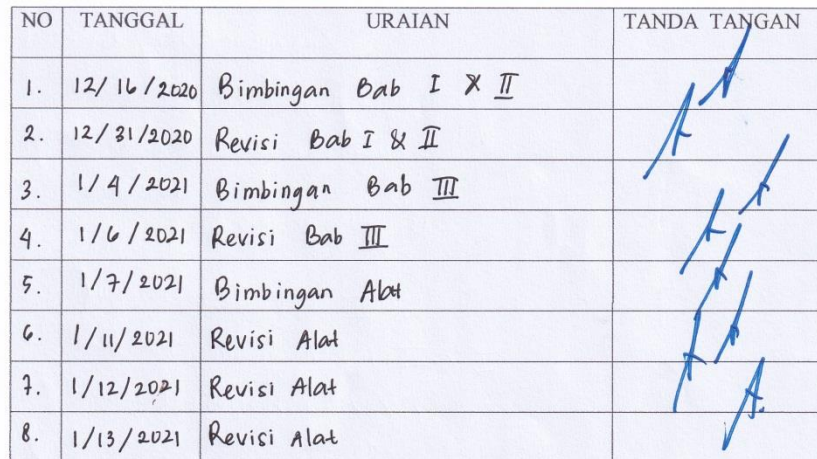 NO TANGGAL URAIAN TANDA TANGAN
1. 12/16/2020 Bimbingan Bab I & II
2. 12/31/2020 Revisi Bab I & II
3. 1/4/2021 Bimbingan Bab III
4. 1/6/2021 Revisi Bab III
5. 1/7/2021 Bimbingan Alat
6. 1/11/2021 Revisi Alat
7. 1/12/2021 Revisi Alat
8. 1/13/2021 Revisi Alat